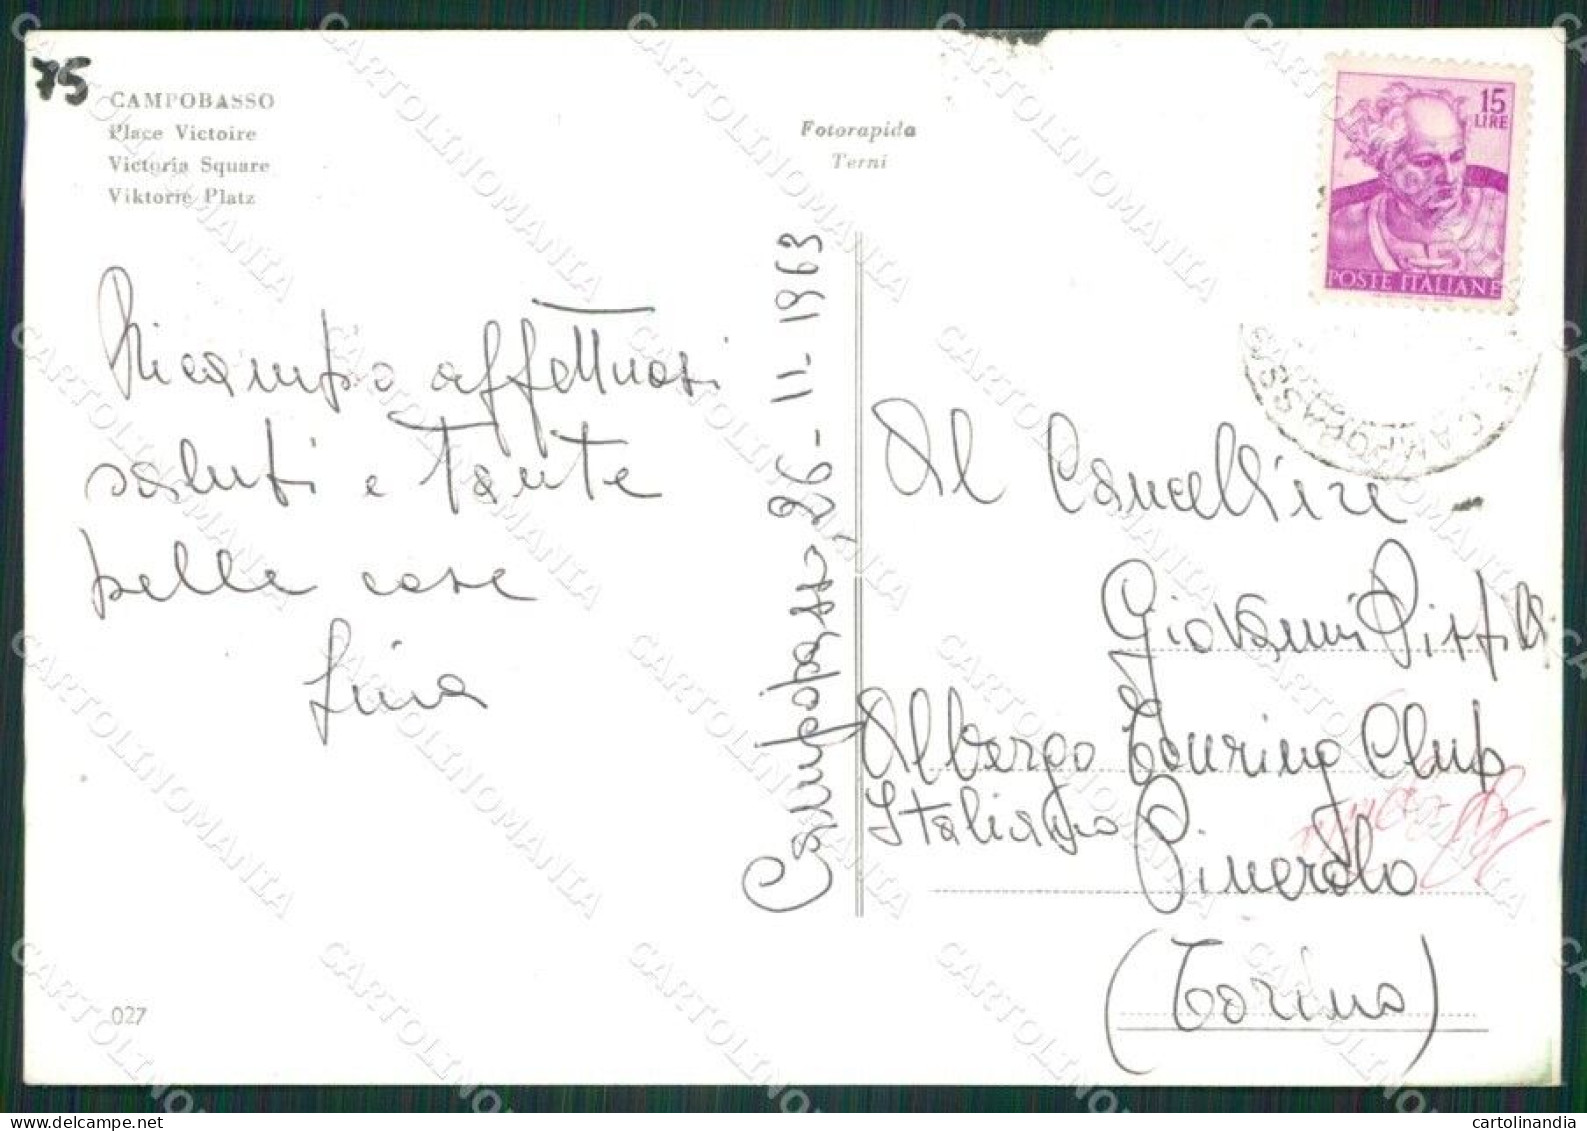 75
CAMPOBASSO
Place Victoire
Victoria Square
Viktorie Platz
Fotorapida
Terni
15
LIRE
POSTE ITALIANE
CAMPOBASSO
Ricambio affettuosi
saluti e tante
belle cose
Lina
Campobasso, 26-11-1963
Al Cancelliere
Giovanni
Albergo Touring Club
Italiano
Pinerolo
(Torino)
027
CARTOLINOMANIA
cartolinandia